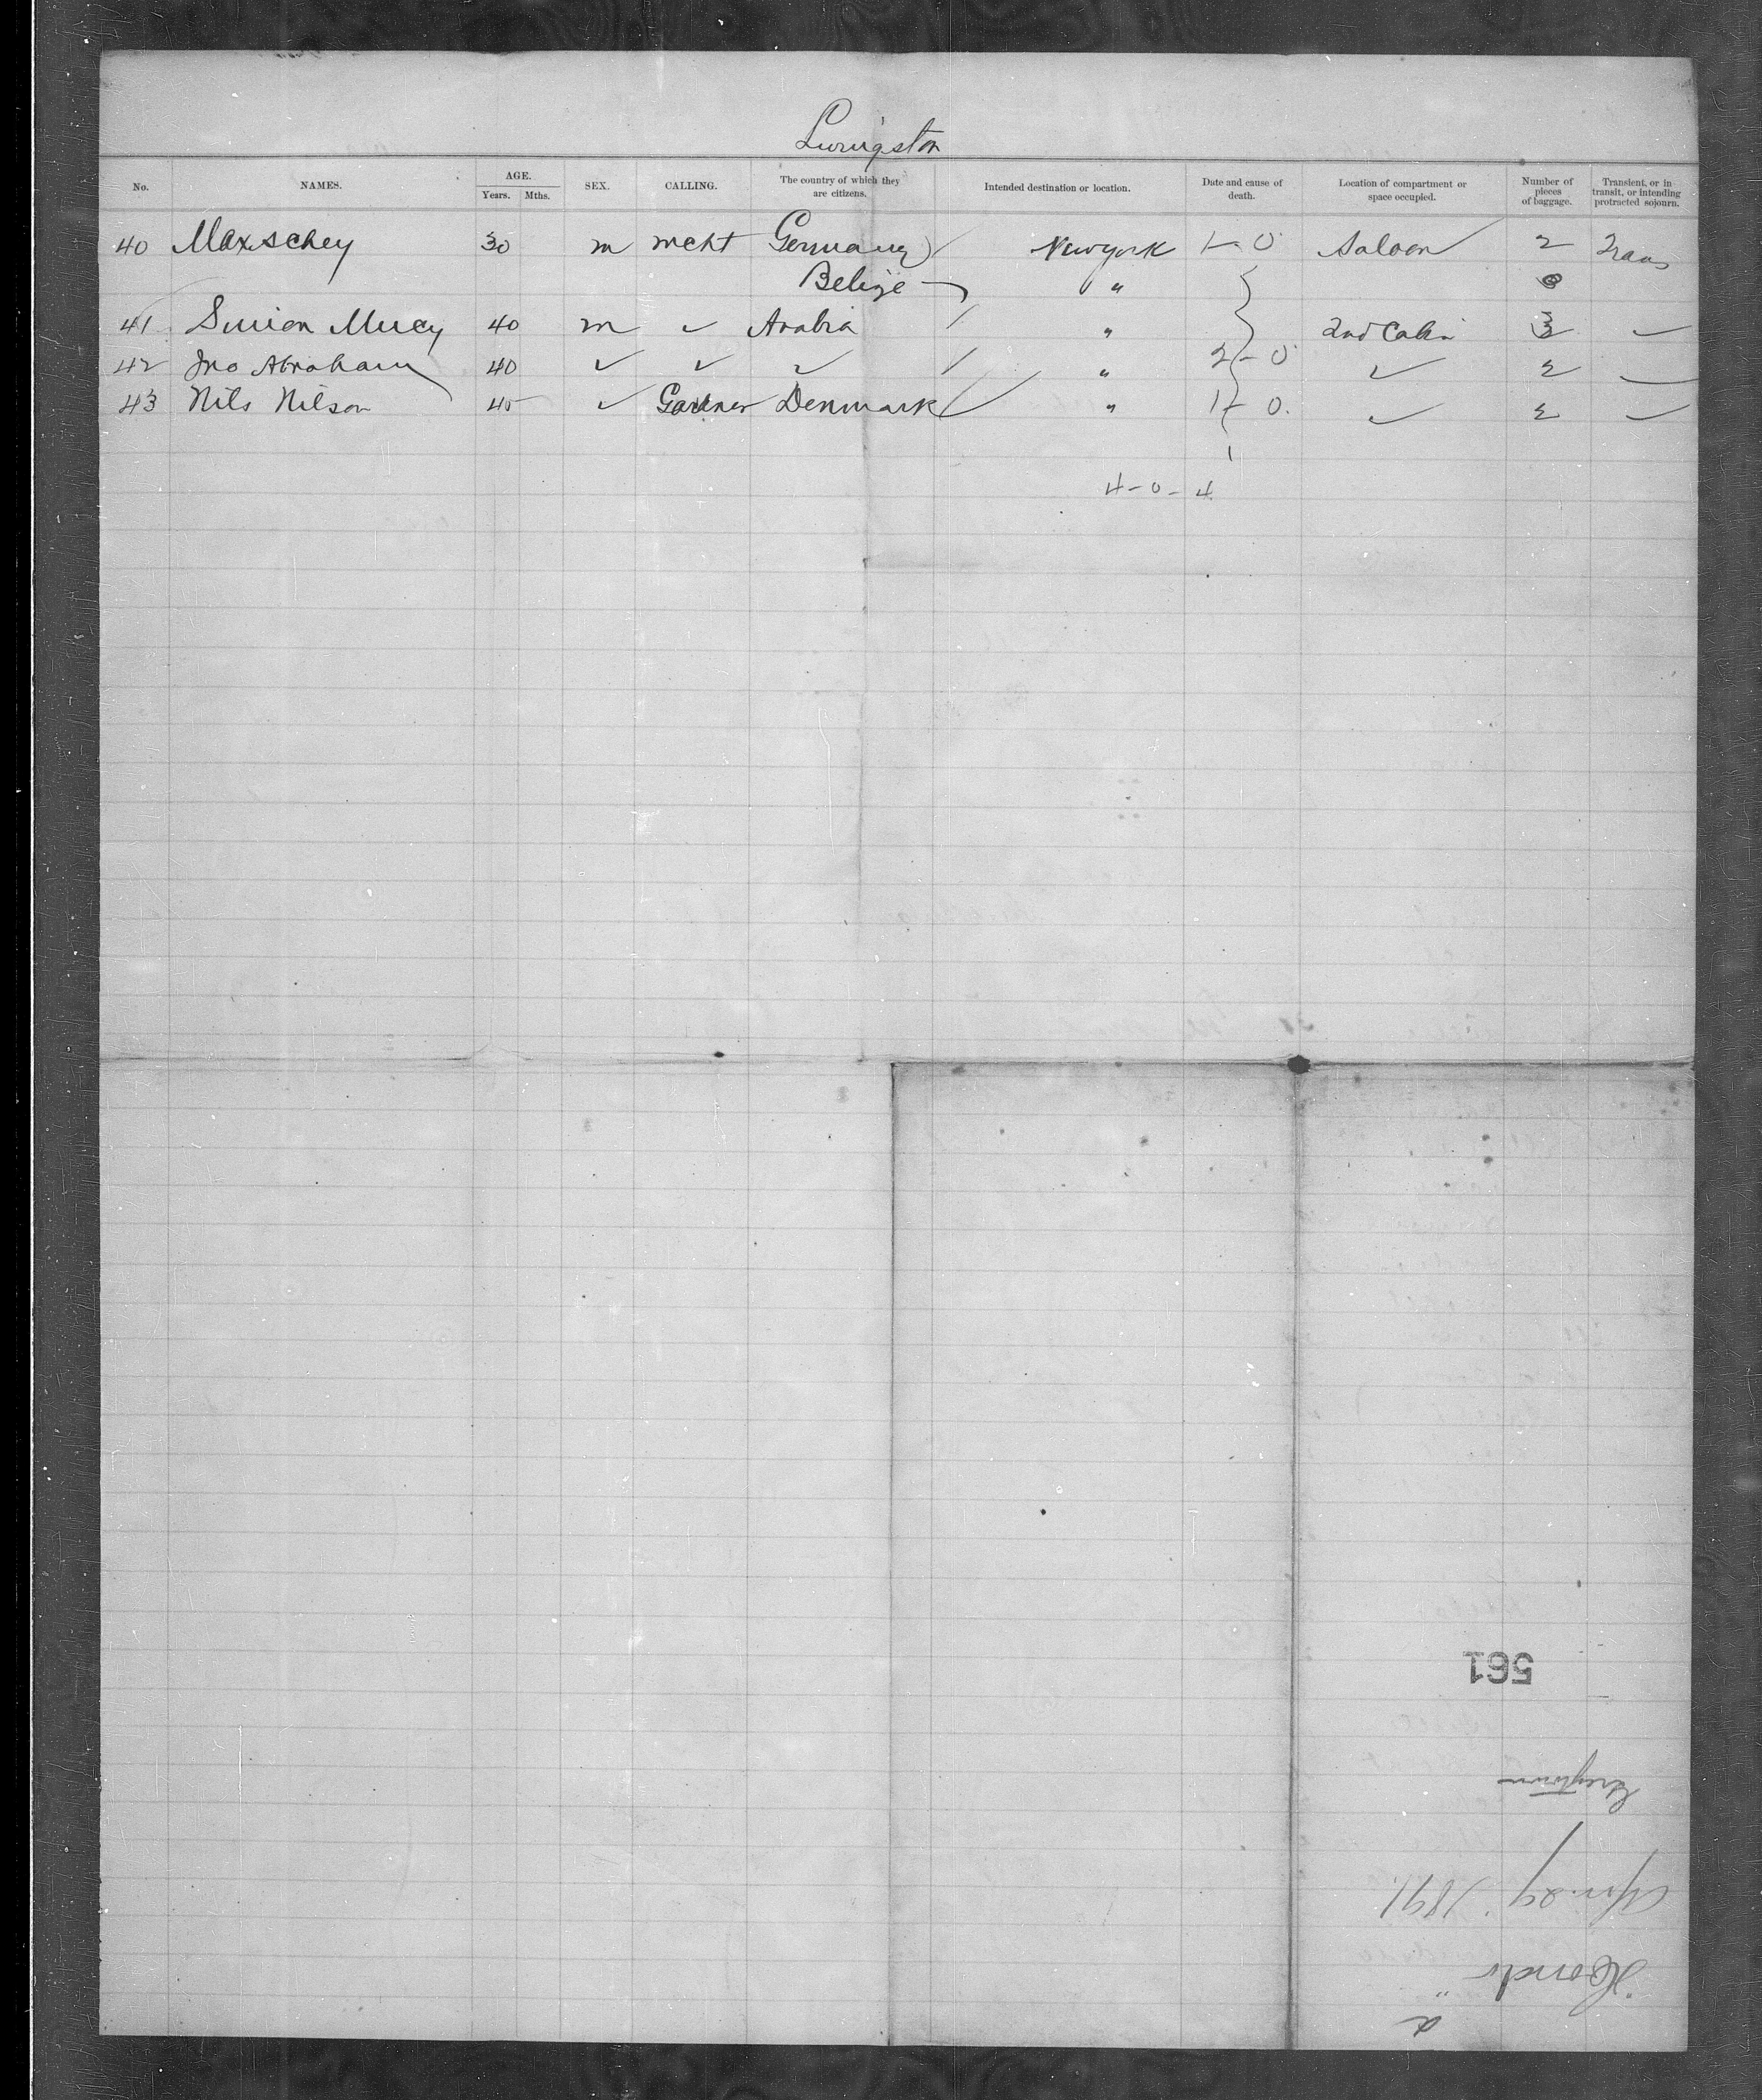 Livingston
No. NAMES. AGE. Years. Mths. SEX. CALLING. The country of which they are citizens. Intended destination or location. Date and cause of death. Location of compartment or space occupied. Number of pieces of baggage. Transient, or in transit, or intending protracted sojourn.
40 Max Schey 30 m mcht Germany New york 1 - 0 Saloon 2 Trans
Belize "
41 40 m ✓ Arabia " 2nd Cabin 3 ✓
42 Jno Abraham 40 ✓ ✓ ✓ " 2 - 0 ✓ 2 ✓
43 Nils Nilson 45 ✓ Gardner Denmark " 1 - 0. ✓ 2 ✓
1
4 - 0 - 4
561
Greytown
Apr. 29 1891.
"Hondo"